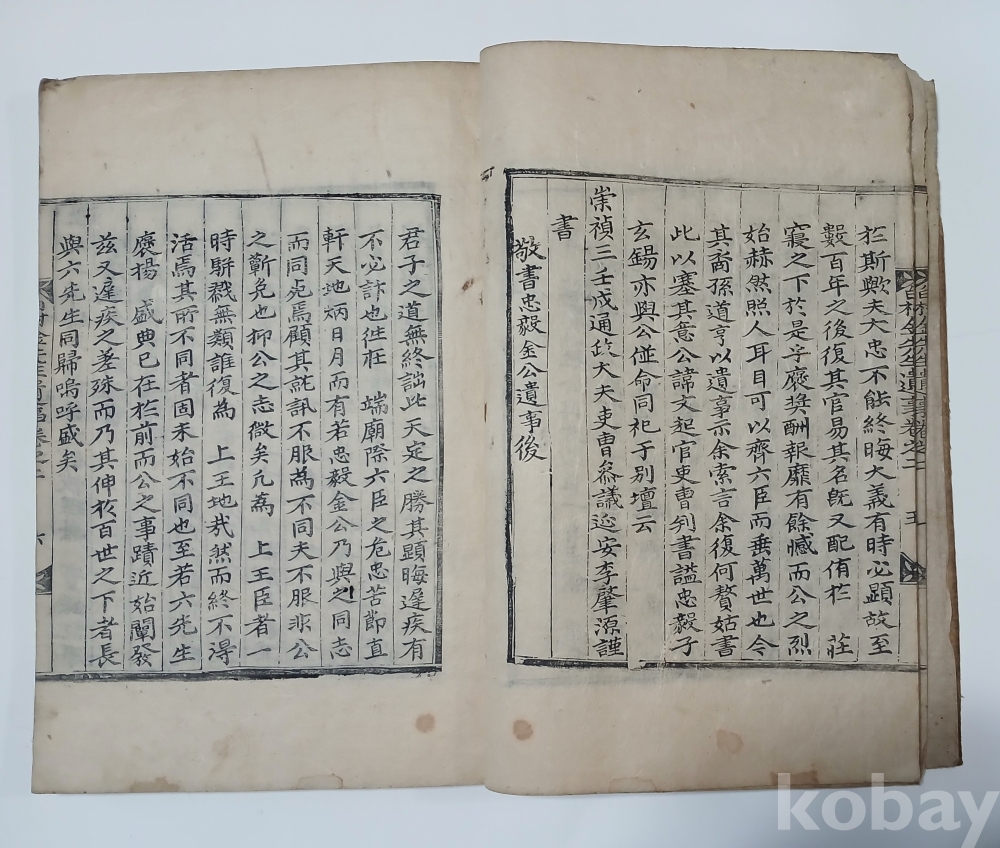 於斯歟夫大忠不能終晦大義有時必顯故至
數百年之後復其官易其名旣又配侑於 莊
寢之下於是乎褒奬酬報靡有餘憾而公之烈
始赫然照人耳目可以齊六臣而垂萬世也今
其裔孫道亨以遺事示余索言余復何贅姑書
此以塞其意公諱文起官吏曹判書謚忠毅子
玄錫亦與公倂命同祀于別壇云
崇禎三壬戌通政大夫吏曹參議延安李肇源謹
書
敬書忠毅金公遺事後
君子之道無終詘此天定之勝其顯晦遲疾有
不必計也徃在 端廟際六臣之危忠苦節直
軒天地炳日月而有若忠毅金公乃與之同志
而同死焉顧其訊不服爲不同夫不服非公
之蘄免也抑公之志微矣凡爲 上王臣者一
時騈戮無類誰復爲 上王地哉然而終不得
活焉其所不同者固未始不同也至若六先生
褒揚 盛典已在於前而公之事蹟近始闡發
玆又遲疾之差殊而乃其伸於百世之下者長
與六先生同歸嗚呼盛矣
金先生遺事卷之二 五
六
kobay